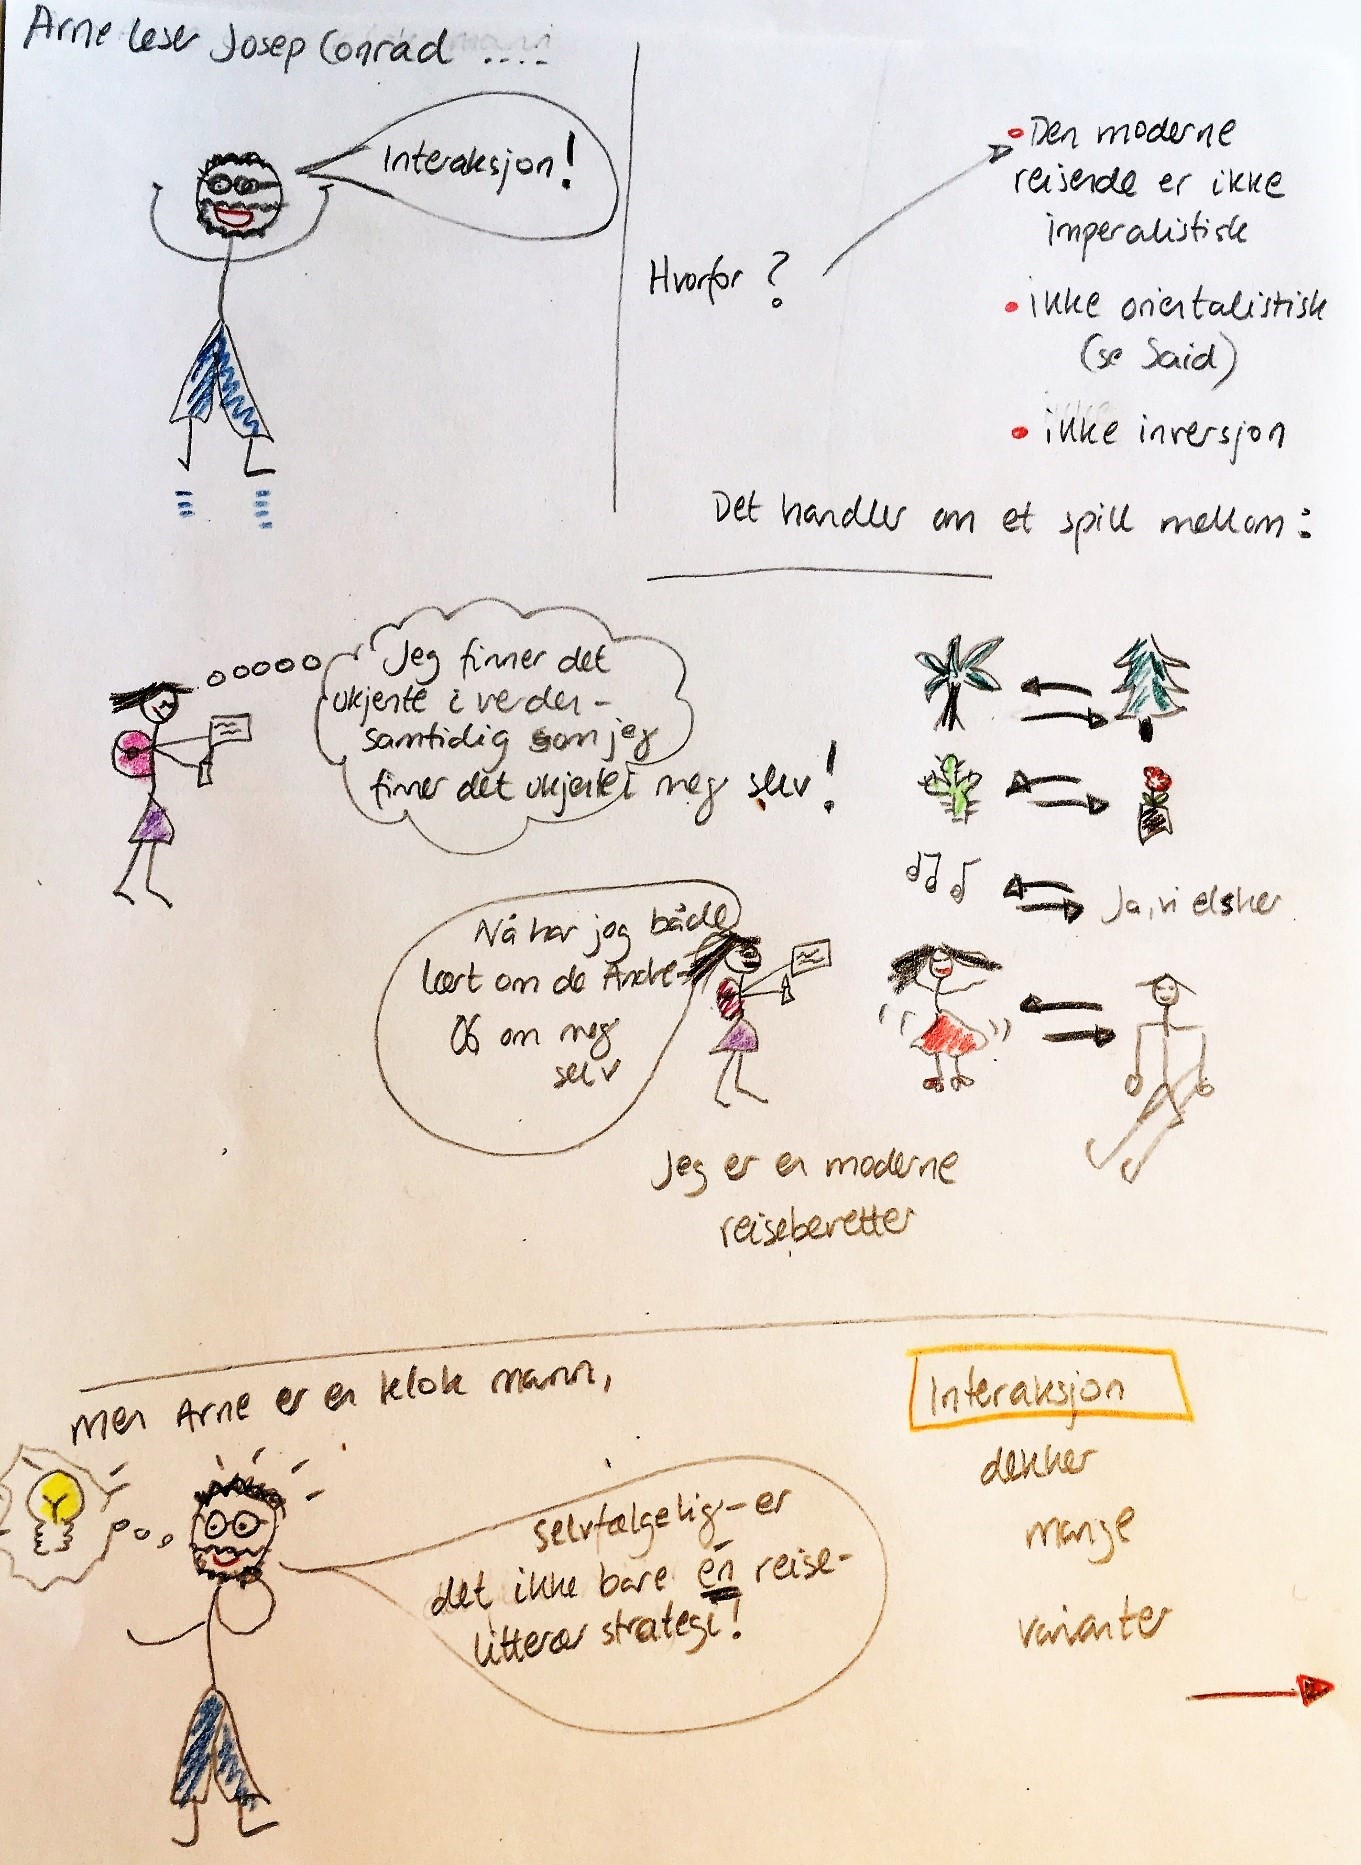 Arne leser Josep Conrad ....
Interaksjon!
Hvorfor?
Den moderne
reisende er ikke
imperalistisk
ikke orientalistisk
(se Said)
ikke inversjon
Det handler om et spill mellom:
Jeg finner det
ukjente i verden -
samtidig som jeg
finner det ukjente i meg selv!
Ja, vi elsker
Nå har jeg både
lært om de Andre
OG om meg
selv
Jeg er en moderne
reiseberetter
Men Arne er en klok mann,
selvfølgelig - er
det ikke bare én reise-
litterær strategi!
Interaksjon
dekker
mange
varianter